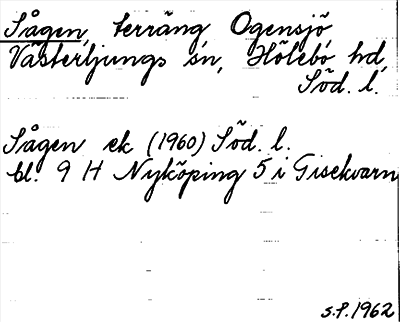 Sågen, terräng Ogensjö
Västerljungs sn, Hölebo hd,
Söd. l.
Sågen ek (1960) Söd. l.
bl. 9 H Nyköping 5 i Gisekvarn
S.P. 1962